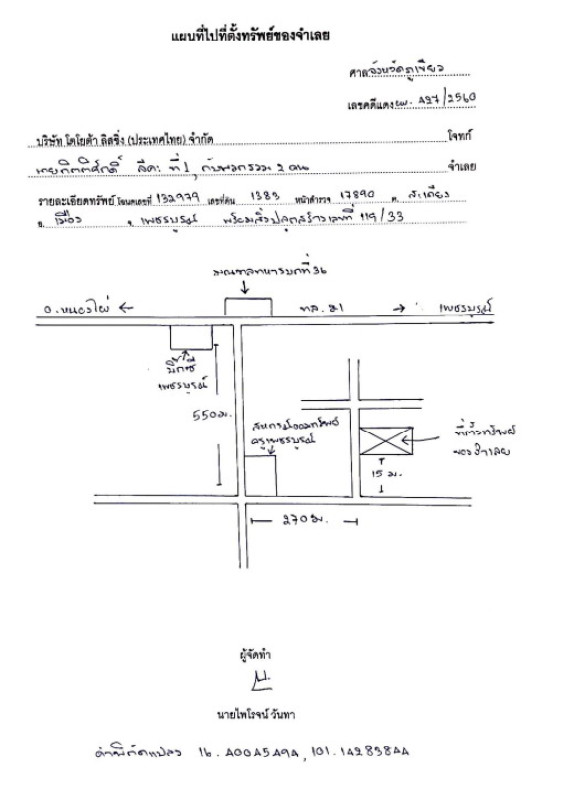 แผนที่ไปที่ตั้งทรัพย์ของจำเลย
ศาลจังหวัดภูเขียว
เลขคดีแดง ผบ. A27/2560
บริษัท โตโยต้า ลีสซิ่ง (ประเทศไทย) จำกัด โจทก์
นายกิตติศักดิ์ ที่ 1, กับพวกรวม 2 คน จำเลย
รายละเอียดทรัพย์ โฉนดเลขที่ 132979 เลขที่ดิน 1383 หน้าสำรวจ 17890 ต. สะเดียง
อ. เมือง จ. เพชรบูรณ์ พร้อมสิ่งปลูกสร้างเลขที่ 119/33
มณฑลทหารบกที่ 36
อ.หนองไผ่ ทล. 21 เพชรบูรณ์
บิ๊กซี
เพชรบูรณ์
550 ม.
สหกรณ์ออมทรัพย์
ครูเพชรบูรณ์
ที่ตั้งทรัพย์
ของจำเลย
15 ม.
270 ม.
ผู้จัดทำ
นายไพโรจน์ วันทา
ค่าพิกัดแปลง 16.A00A5A9A, 101.142838AA